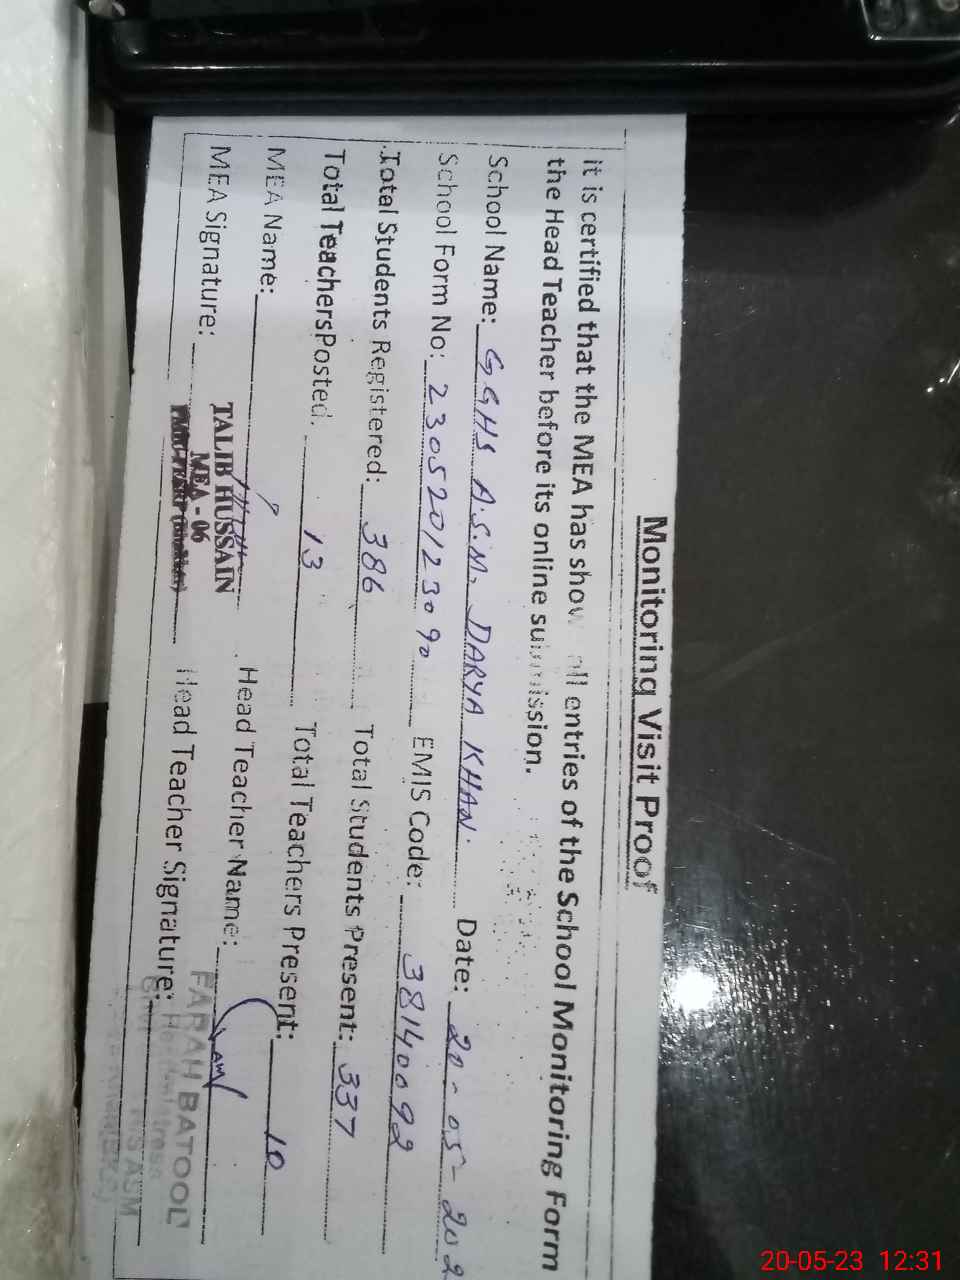 Monitoring Visit Proof
it is certified that the MEA has show all entries of the School Monitoring Form
the Head Teacher before its online submission.
School Name: GGHS A.S.M. DARYA KHAN. Date: 20-05-202
School Form No: 2305201230 90 EMIS Code: 38140092
Total Students Registered: 386 Total Students Present: 337
Total TeachersPosted. 13 Total Teachers Present: 10
MEA Name: Head Teacher Name:
MEA Signature: Head Teacher Signature:
TALIB HUSSAIN
MEA - 06
FARAH BATOOL
Headmistress
ASM
20-05-23 12:31